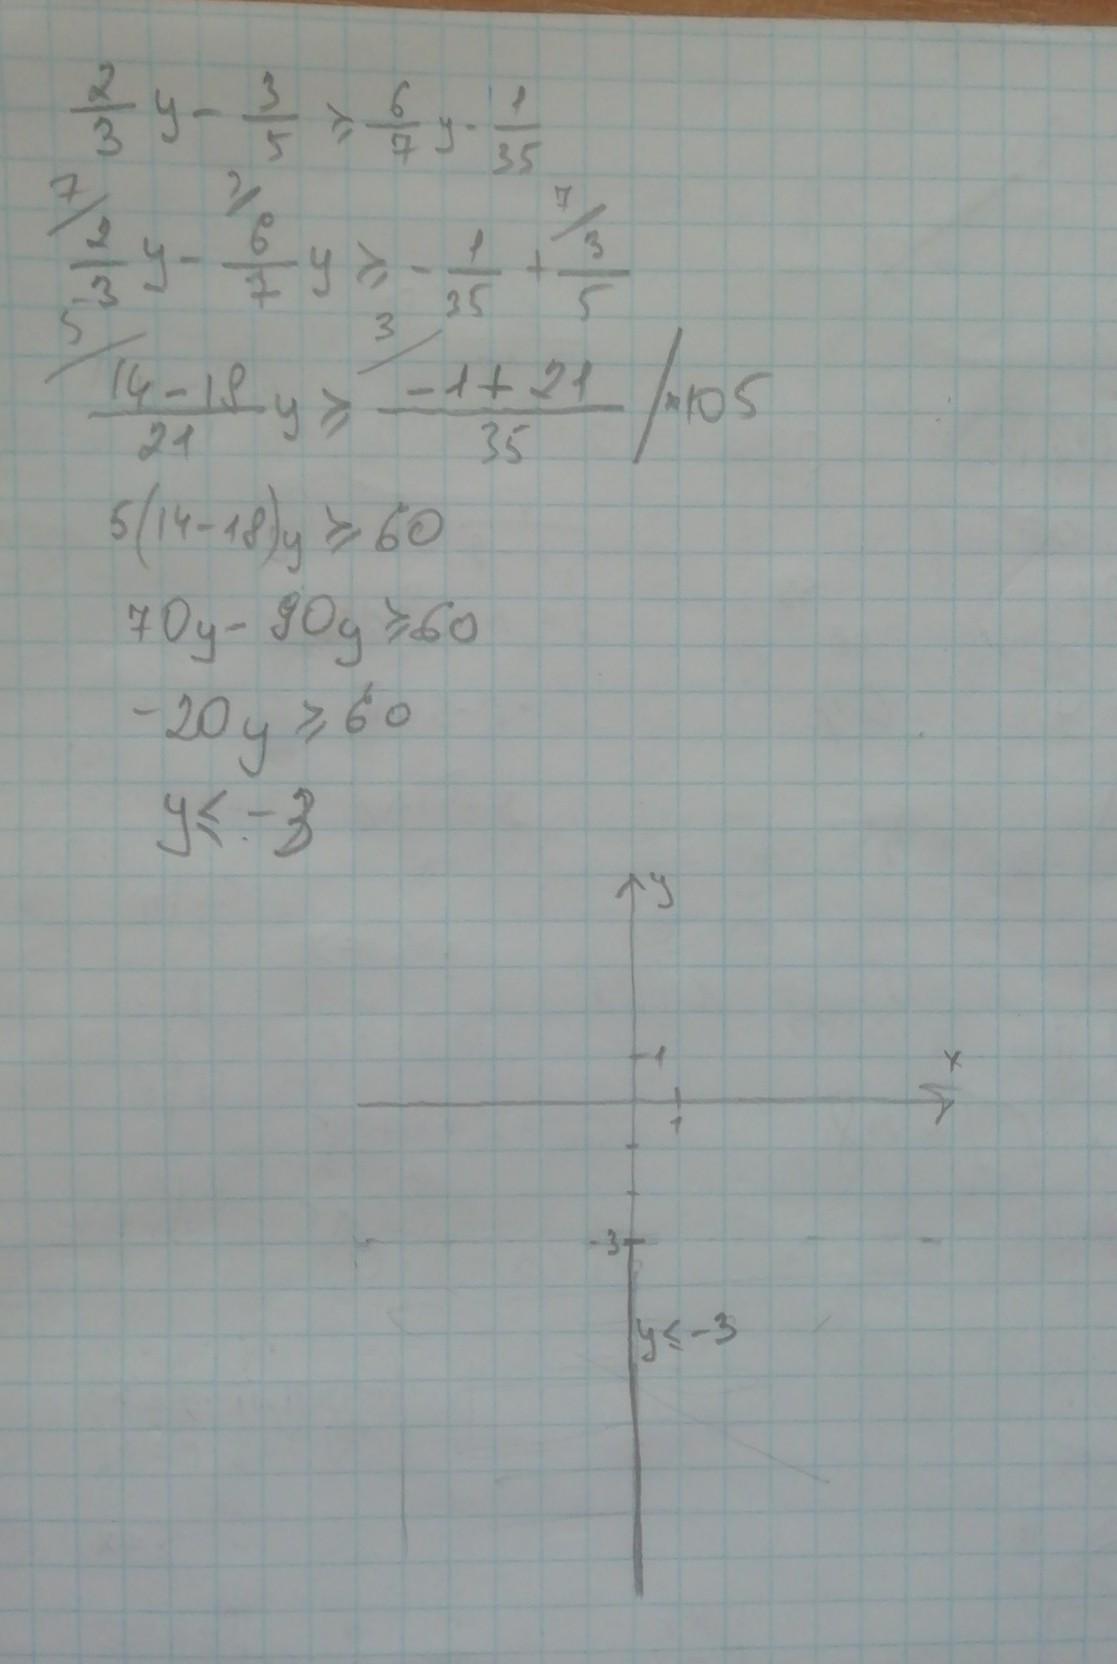 2/3 y - 3/5 ≥ 6/7 y - 1/35
7/ 2/3 y - 6/7 y ≥ - 1/35 + 7/ 3/5
5/ (14-18)/21 y ≥ 3/ (-1+21)/35 / *105
5(14-18)y ≥ 60
70y - 90y ≥ 60
-20y ≥ 60
y ≤ -3
y
1
x
1
-3
y ≤ -3